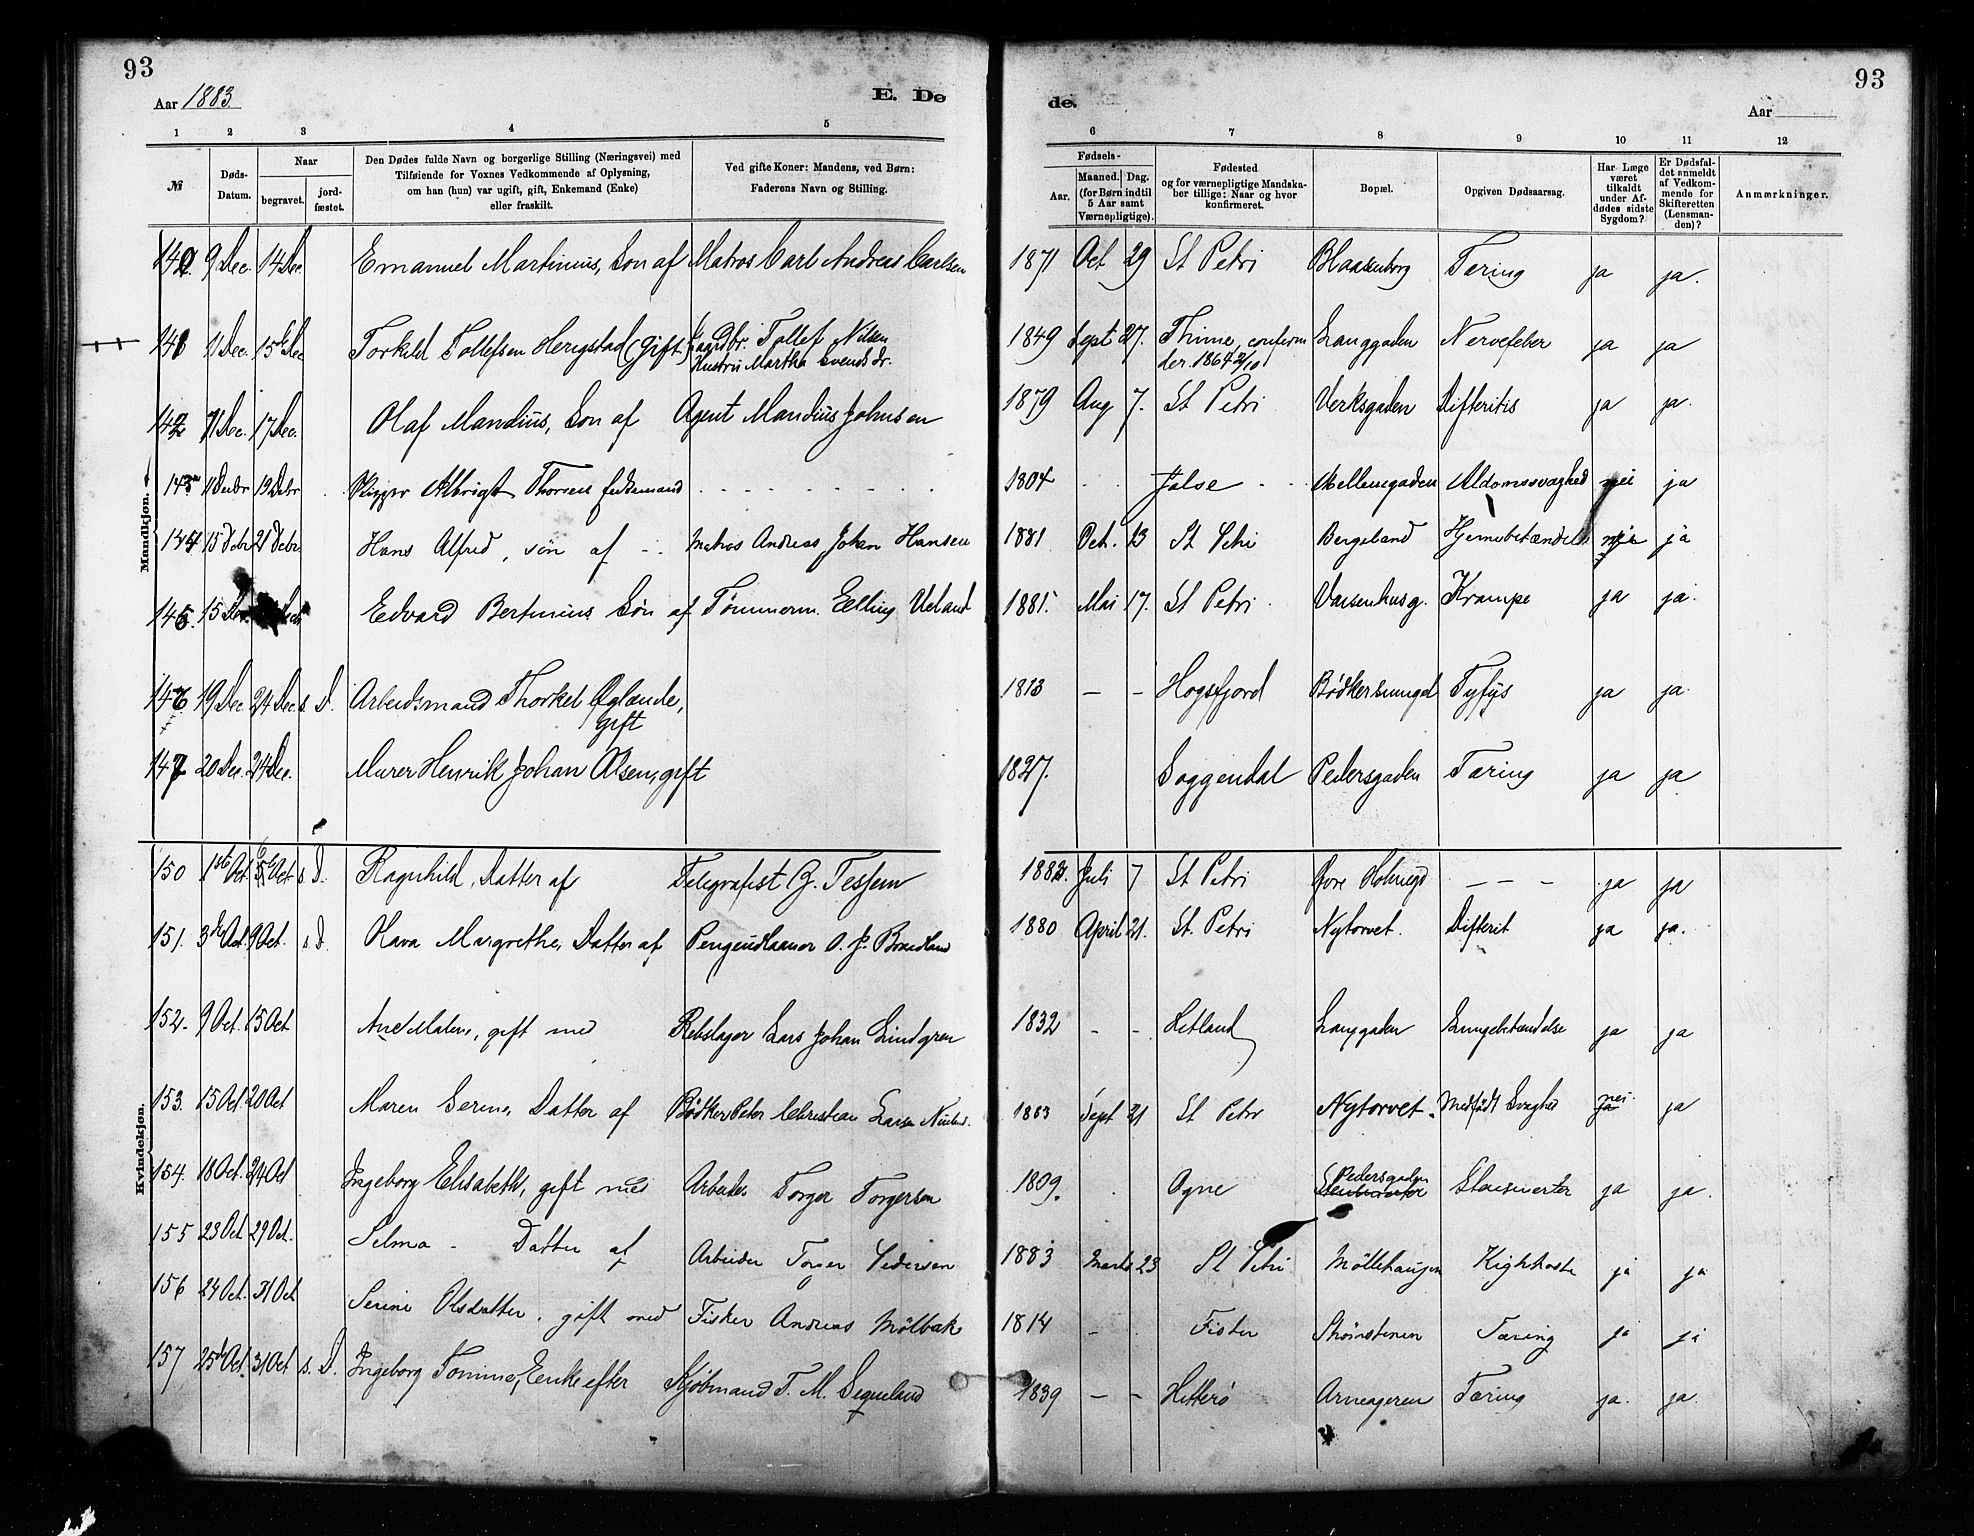 93
93
Aar 1883.
E. Dø
de.
Aar
1 2 3 4 5 6 7 8 9 10 11 12
№
Døds-Datum.
Naar
begravet.
jord-fæstet.
Den Dødes fulde Navn og borgerlige Stilling (Næringsvei) med
Tilføiende for Voxnes Vedkommende af Oplysning,
om han (hun) var ugift, gift, Enkemand (Enke)
eller fraskilt.
Ved gifte Koner: Mandens, ved Børn:
Faderens Navn og Stilling.
Fødsels-
Aar.
Maaned. Dag.
(for Børn indtil
5 Aar samt
Værnepligtige).
Fødested
og for værnepligtige Mandska-
ber tillige: Naar og hvor
konfirmeret.
Bopæl.
Opgiven Dødsaarsag.
Har Læge
været
tilkaldt
under Af-
dødes sidste
Sygdom?
Er Dødsfal-
det anmeldt
af Vedkom-
mende for
Skifteretten
(Lensman-
den)?
Anmærkninger.
Mandkjøn.
140. 9 Dec. 14 Dec Emanuel Martinius, Søn af Matros Carl Andreas Carlsen 1871 Oct 29 St Petri Blaasenborg Tæring ja ja.
141 11 Dec. 15de Dec Torkild Tollefsen Herigstad (Gift) Gaardbr. Tollef Nilsen 1849 Sept 27. Thime, confirm Langgaden Nervefeber ja ja
Hustru Martha Svendsdr. der. 1864 2/10
142 11 Dec. 17 Dec. Olaf Mandius, Søn af Agent Mandius Johnsen 1879 Aug 7. St Petri Verksgaden Difteritis ja ja.
143 11 Decbr 19 Decbr Skipper Albrigt Thorsen Enkemand 1804 Jelse Mellemgaden Aldomssvaghed nei ja
144 15 Decbr 21 Decbr Hans Alfred, søn af Matros Andreas Johan Hansen 1881 Oct. 13 St Petri Bergeland Hjernebetændelse ja ja
145. 15 Dec. Edvard Bertinius Søn af Tømmerm. Elling Ueland 1881. Mai 17. St Petri Vaisenhusg. Krampe ja ja.
146 19 Dec. 24 Dec. s. D. Arbeidsmand Thorkel Oglænde, 1813 — — Høgsfjord Bødkersmuget Tyfus ja ja.
gift
147 20 Dec. 24 Dec. Murer Henrik Johan Olsen, gift 1827. Soggendal Pedersgaden Tæring ja ja
Kvindekjøn.
150 1ste Oct. 5te Oct s. D. Ragnhild, Datter af Telegrafist G. Tessem 1882. Juli 7 St Petri Øvre Holmegd — — — ja ja
151. 3de Oct. 9 Oct. s. D. Olava Margrethe, Datter af Pengeudlaaner O. J. Brandland 1880 April 21. St. Petri Nytorvet. Difterit ja ja.
152. 9 Oct. 15 Oct Ane Malene, gift med Rebslager Lars Johan Lindgren 1832 — — Hetland Langgaden Lungebetændelse ja ja
153. 15 Oct. 20 Oct Maren Serine, Datter af Bødker Peter Christian Larsen 1883 Sept 21 St Petri Nytorvet. Medfødt Svaghed nei ja
154. 18 Oct. 24 Oct Ingeborg Elisabeth, gift med Arbeider Torger Torgersen 1809. Ogne Pedersgaden ja ja.
155 23 Oct 29 Oct. Selma - Datter af Arbeider Pedersen 1883 Marts 23 St Petri Møllehaugen Kighoste ja ja
156 24 Oct. 31 Oct Serine Olsdatter. gift med Fisker Andreas Mølbak 1814 Fister Strømstenen Tæring ja ja
157 25de Oct. 31 Oct s. D. Ingeborg Tomine, Enke efter Kjøbmand T. M. Segueland 1839 — — Hitterø Arneageren Tæring ja. ja.